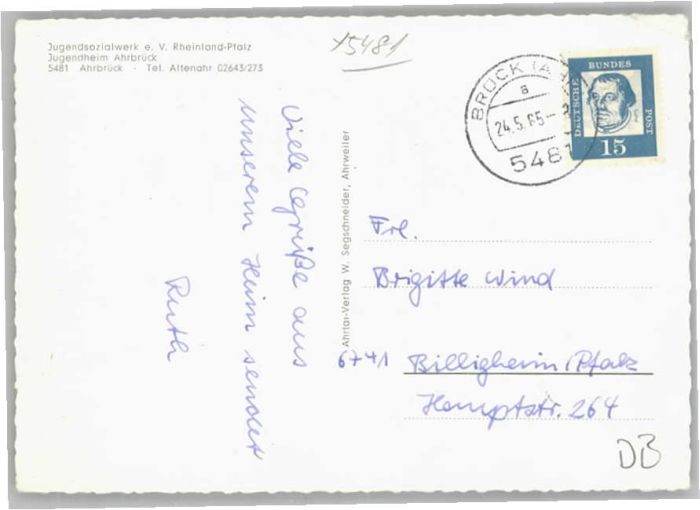 Jugendsozialwerk e. V. Rheinland-Pfalz
Jugendheim Ahrbrück
5481 Ahrbrück - Tel. Altenahr 02643/273
Y5481
BRÜCK (AHR)
a
24.5.65-
5481
DEUTSCHE
BUNDES
POST
15
Viele Grüße aus
unserem Heim sendet
Ruth
Ahrtal-Verlag W. Segschneider, Ahrweiler
Frl.
Brigitte Wind
6741 Billigheim/Pfalz
Hauptstr. 264
DB